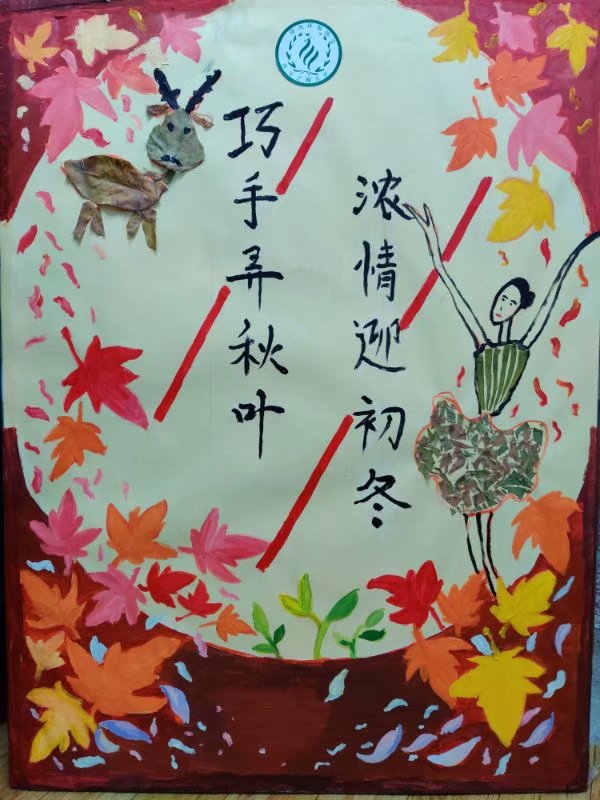 巧手弄秋叶
浓情迎初冬